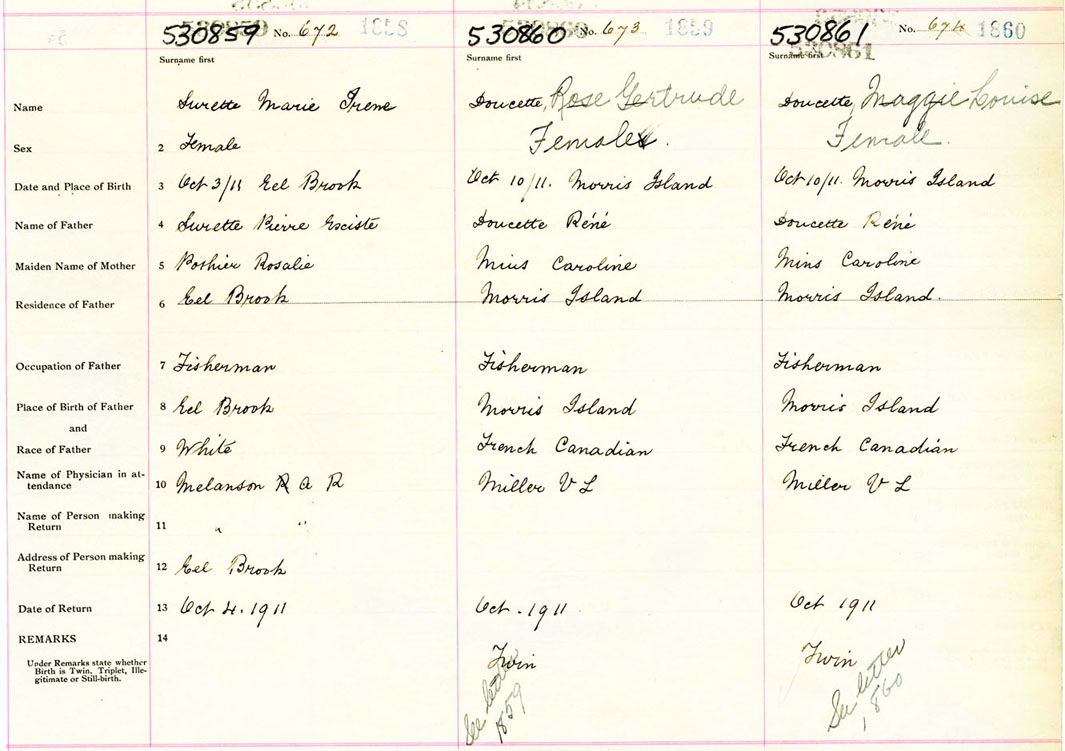 530859 No. 672 1858 530860 No. 673 1859 530861 No. 674 1860
Surname first Surname first Surname first
530861
Name Surette Marie Irene Doucette, Rose Gertrude Doucette, Maggie Louise
Sex 2 Female Female Female.
Date and Place of Birth 3 Oct 3/11 Eel Brook Oct 10/11. Morris Island Oct 10/11. Morris Island
Name of Father 4 Surette Pierre Doucette René Doucette Réné
Maiden Name of Mother 5 Pothier Rosalie Mius Caroline Mius Caroline
Residence of Father 6 Eel Brook Morris Island Morris Island.
Occupation of Father 7 Fisherman Fisherman Fisherman
Place of Birth of Father 8 Eel Brook Morris Island Morris Island
and
Race of Father 9 White French Canadian French Canadian
Name of Physician in at-
tendance 10 Melanson R A R Miller V L Miller V L
Name of Person making
Return 11 " "
Address of Person making
Return 12 Eel Brook
Date of Return 13 Oct 4. 1911 Oct. 1911 Oct 1911
REMARKS 14
Under Remarks state whether
Birth is Twin, Triplet, Ille-
gitimate or Still-birth.
Twin Twin
See letter
1859
See letter
1860